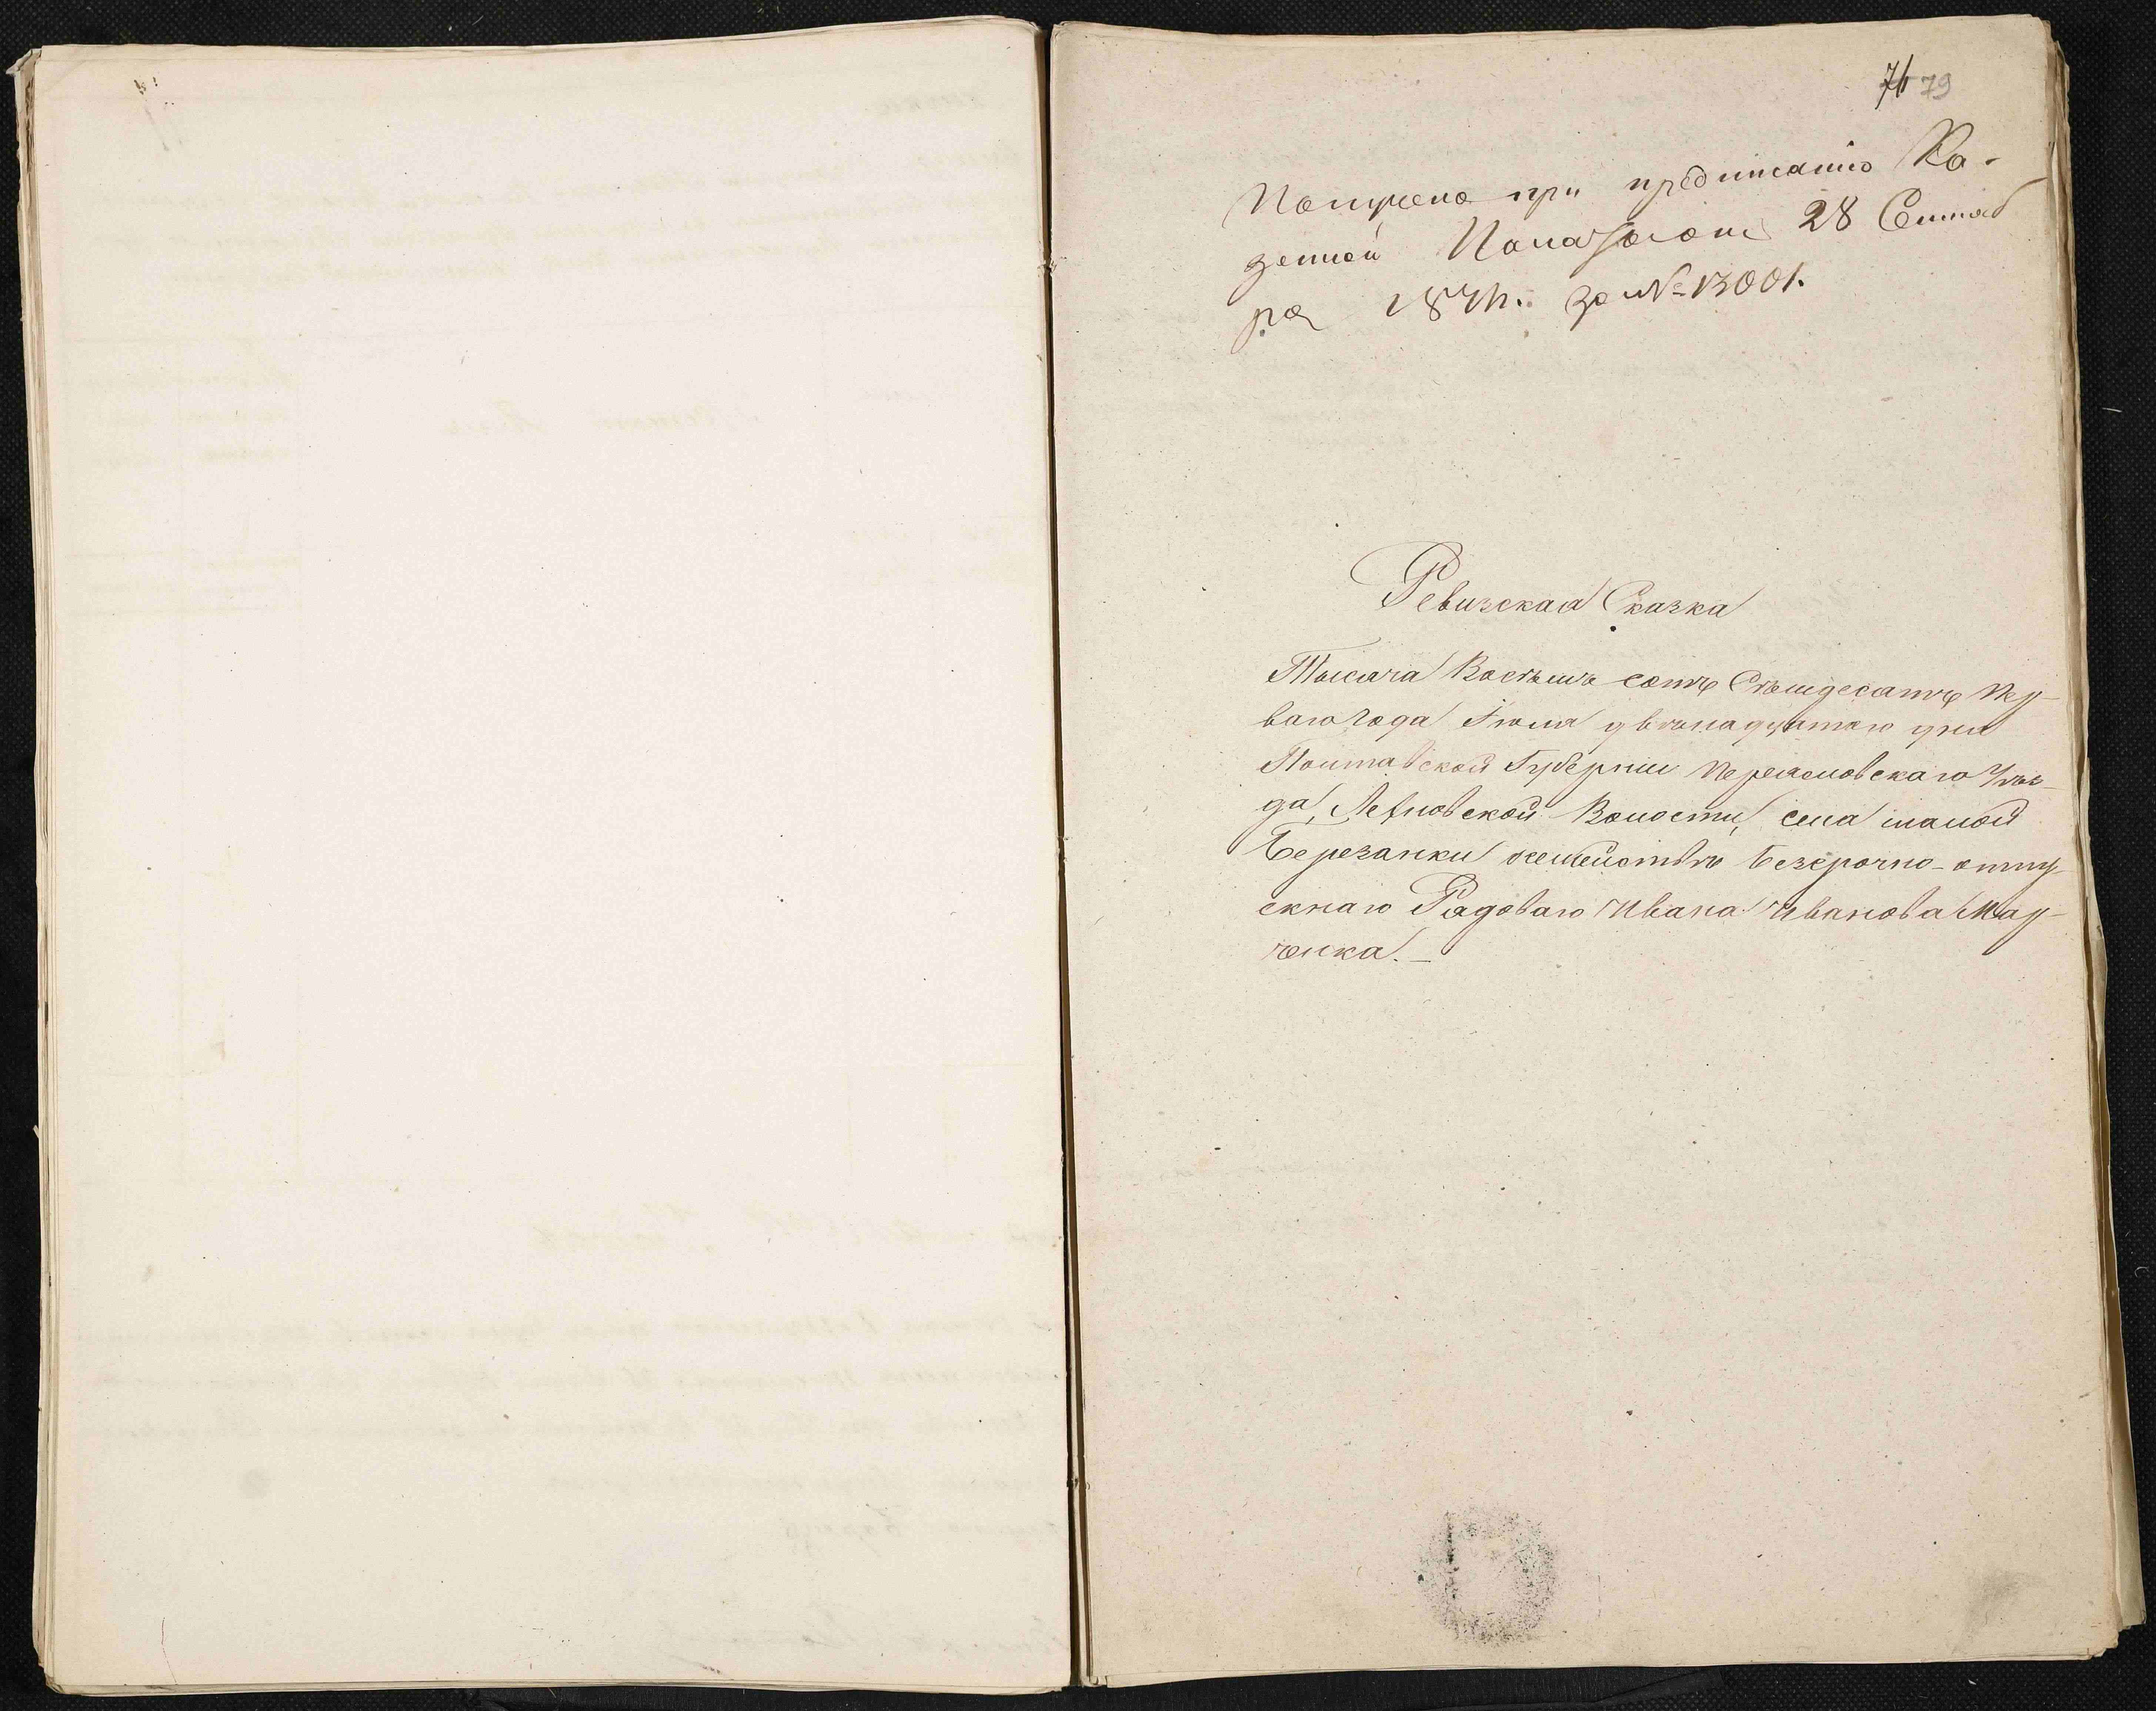 71 79
Получена при предписанію Ка-
зенной Палаты отъ 28 Сентяб
ря 1871 г. за № 13001.
Ревизская Сказка
Тысяча Восѣмъ сотъ Сѣмдесатъ Пер-
ваго Года Іюля двѣнадцатаго дня
Полтавской Губерніи Переясловскаго Уѣз-
да, Волости, села малой
Березанки семейотвѣ безсрочно-отпу-
скнаго Рядоваго Ивана Иванова Мар-
ченка. –